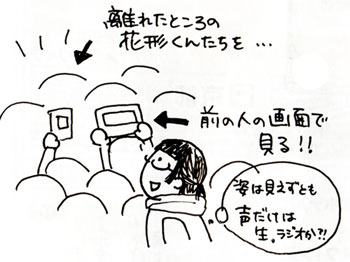 離れたところの
花形くんたちを…
前の人の画面で
見る!!
姿は見えずとも
声だけは
生。ラジオか?!